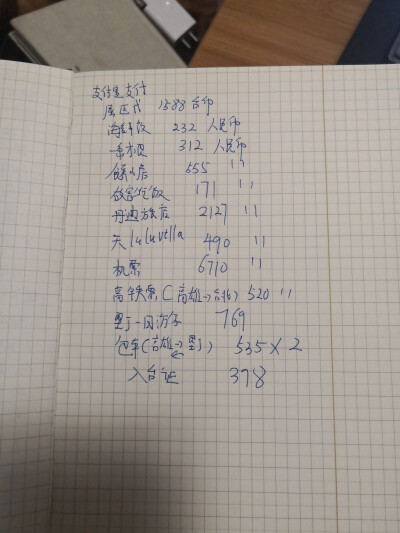 支付宝支付
屈臣氏 1588 台币
海鲜饭 232 人民币
312 人民币
店 555 〃
171 〃
丹迪旅店 2127 〃
lulu villa 490 〃
机票 6710 〃
高铁票(高雄→台北) 520 〃
垦丁一日游 769
包车(高雄→垦丁) 535×2
入台证 378